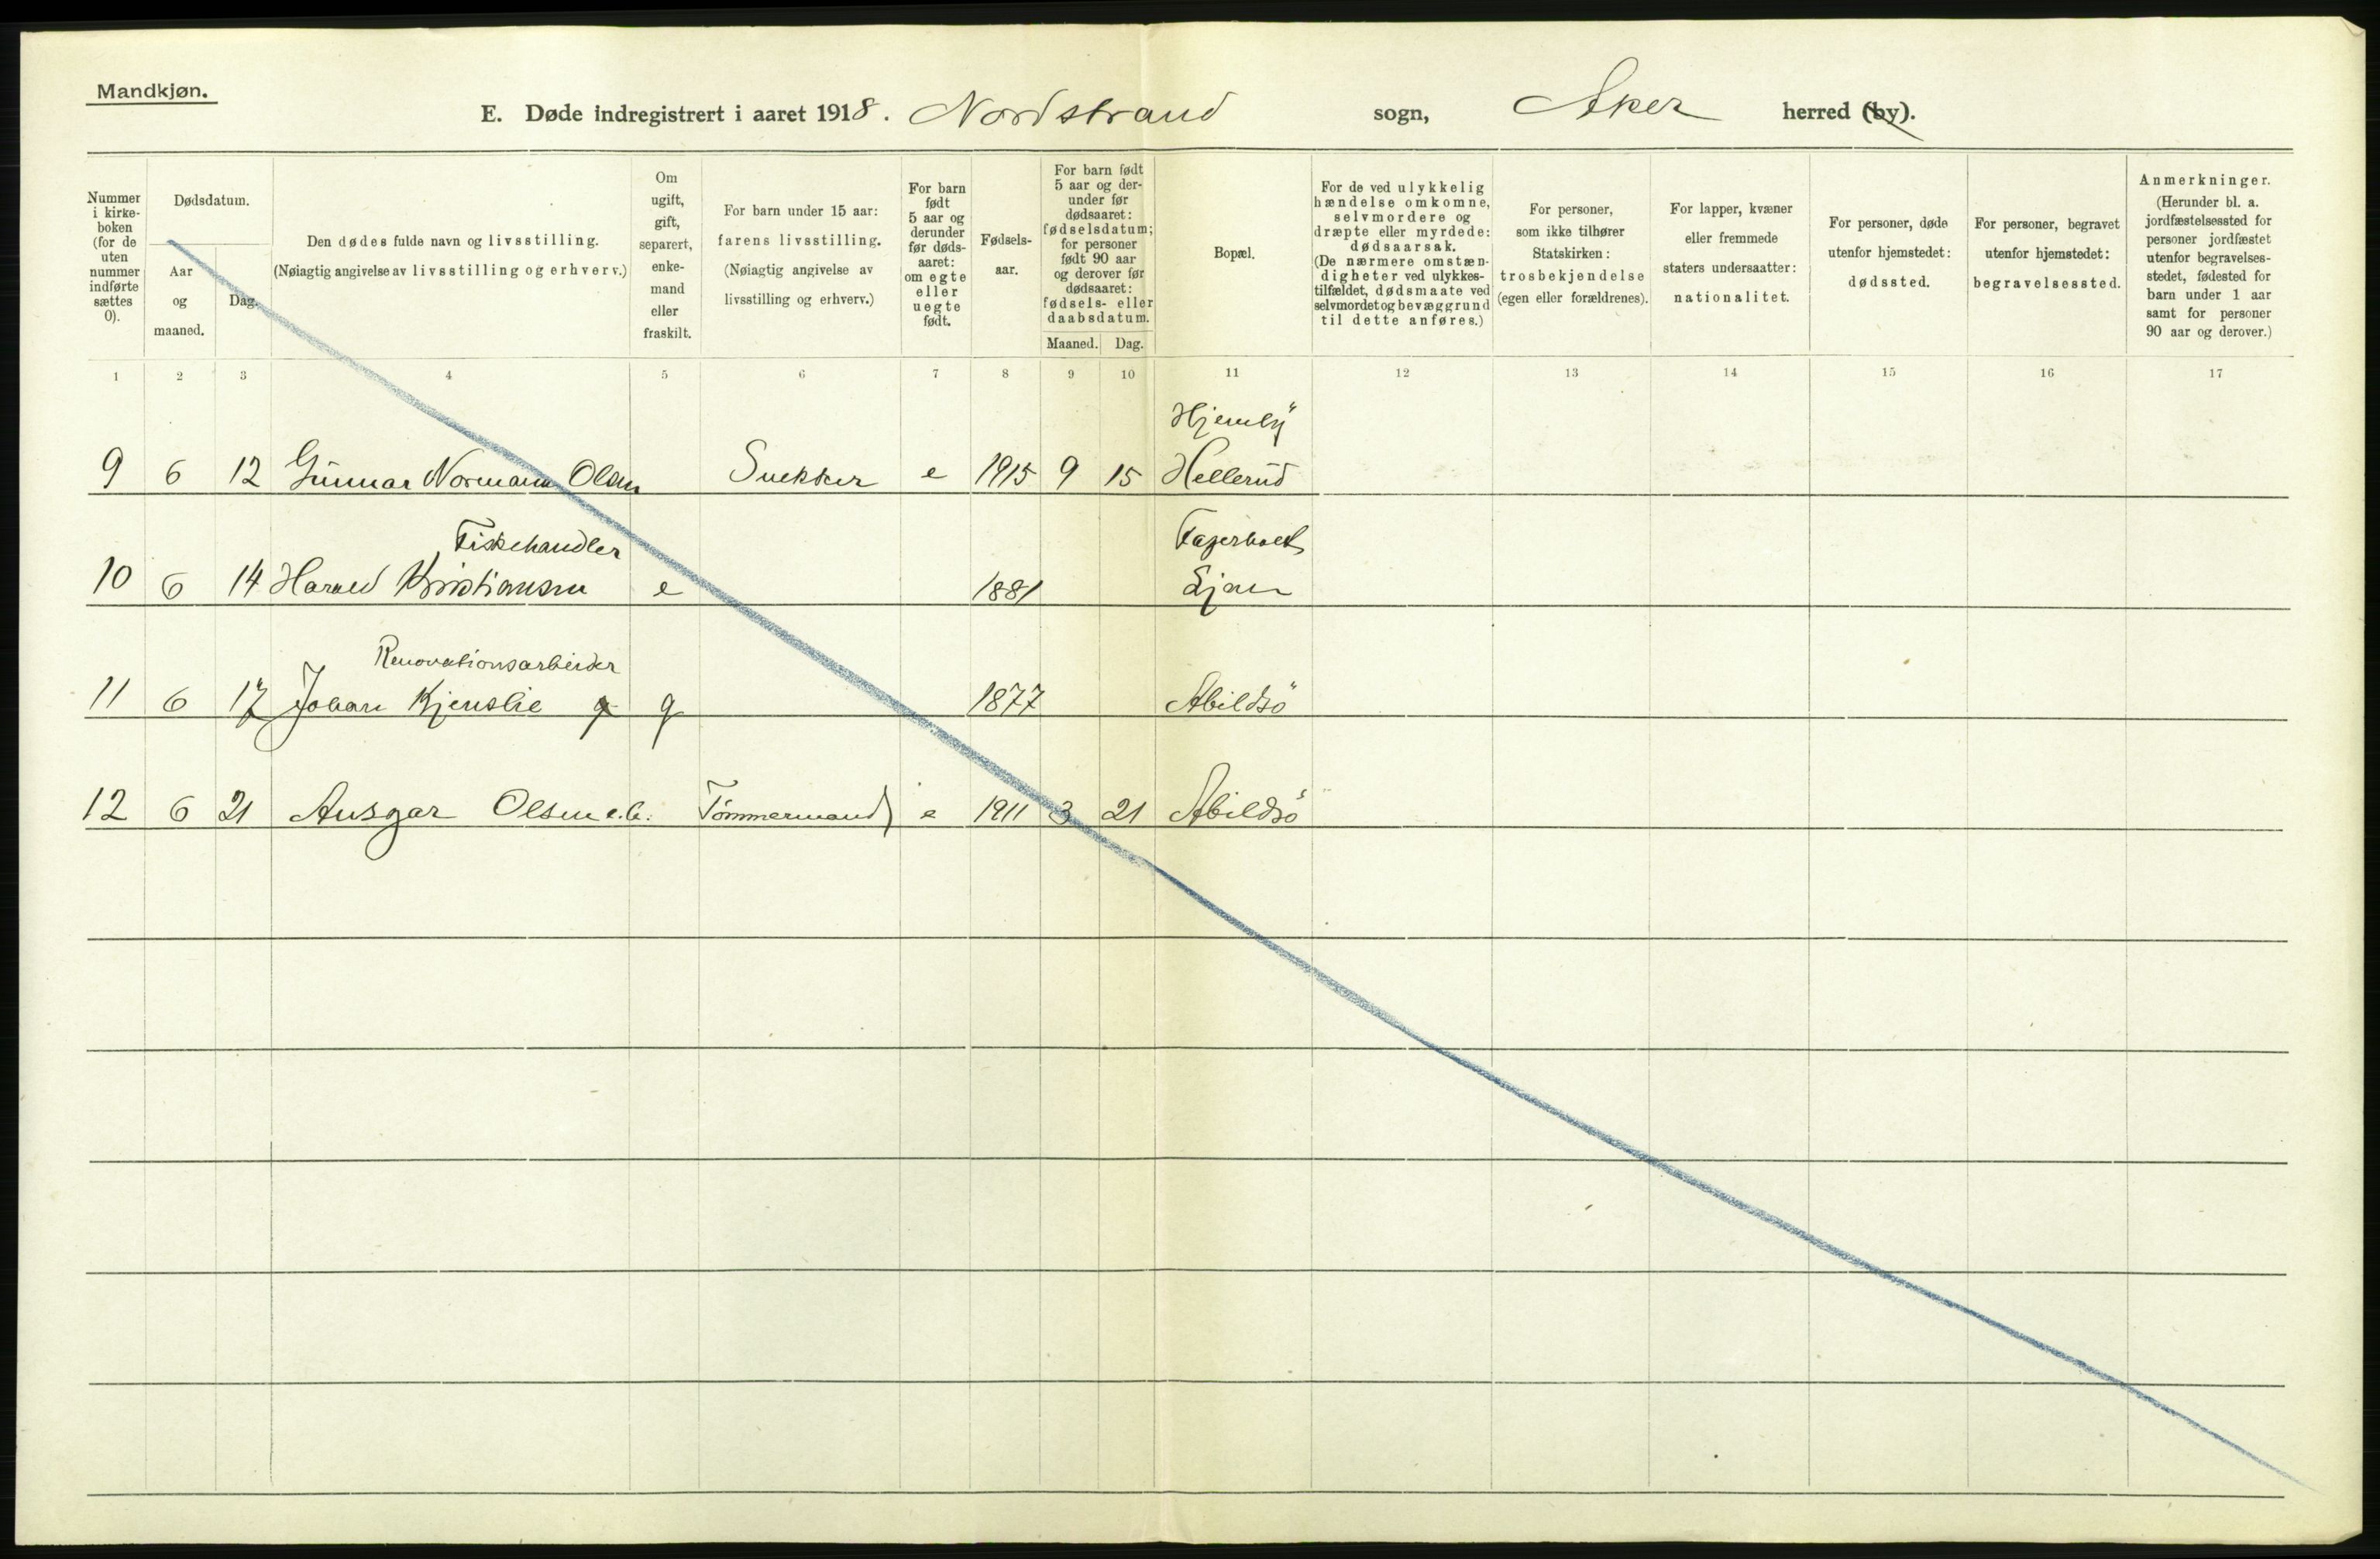 Mandkjøn.
E. Døde indregistrert i aaret 1918. Nordstrand sogn, Aker herred (by).
Nummer i kirke- boken (for de uten nummer indførte sættes 0).
Dødsdatum.
Aar og maaned.
Dag.
Den dødes fulde navn og livsstilling.
(Nøiagtig angivelse av livsstilling og erhverv.)
Om ugift, gift, separert, enke- mand eller fraskilt.
For barn under 15 aar: farens livsstilling. (Nøiagtig angivelse av livsstilling og erhverv.)
For barn født 5 aar og derunder før døds- aaret: om egte eller uegte født.
Fødsels- aar.
For barn født 5 aar og der- under før dødsaaret: fødselsdatum; for personer født 90 aar og derover før dødsaaret: fødsels- eller daabsdatum.
Maaned. Dag.
Bopæl.
For de ved ulykkelig hændelse omkomne, selvmordere og dræpte eller myrdede: dødsaarsak. (De nærmere omstæn- digheter ved ulykkes- tilfældet, dødsmaate ved selvmordet og bevæggrund til dette anføres.)
For personer, som ikke tilhører Statskirken: trosbekjendelse (egen eller forældrenes).
For lapper, kvæner eller fremmede staters undersaatter: nationalitet.
For personer, døde utenfor hjemstedet: dødssted.
For personer, begravet utenfor hjemstedet: begravelsessted.
Anmerkninger. (Herunder bl. a. jordfæstelsessted for personer jordfæstet utenfor begravelses- stedet, fødested for barn under 1 aar samt for personer 90 aar og derover.)
1 2 3 4 5 6 7 8 9 10 11 12 13 14 15 16 17
Hjemly
9 6 12 Gunnar Normann Olsen Snekker e 1915 9 15 Hellerud
Fiskehandler
10 6 14 Harald Kristiansen e 1881 Ljan
Renovationsarbeider
11 6 17 Johan Kjenslie g g 1877 Abildsö
12 6 21 Ansgar Olsen Tömmermand e 1911 3 21 Abildsö